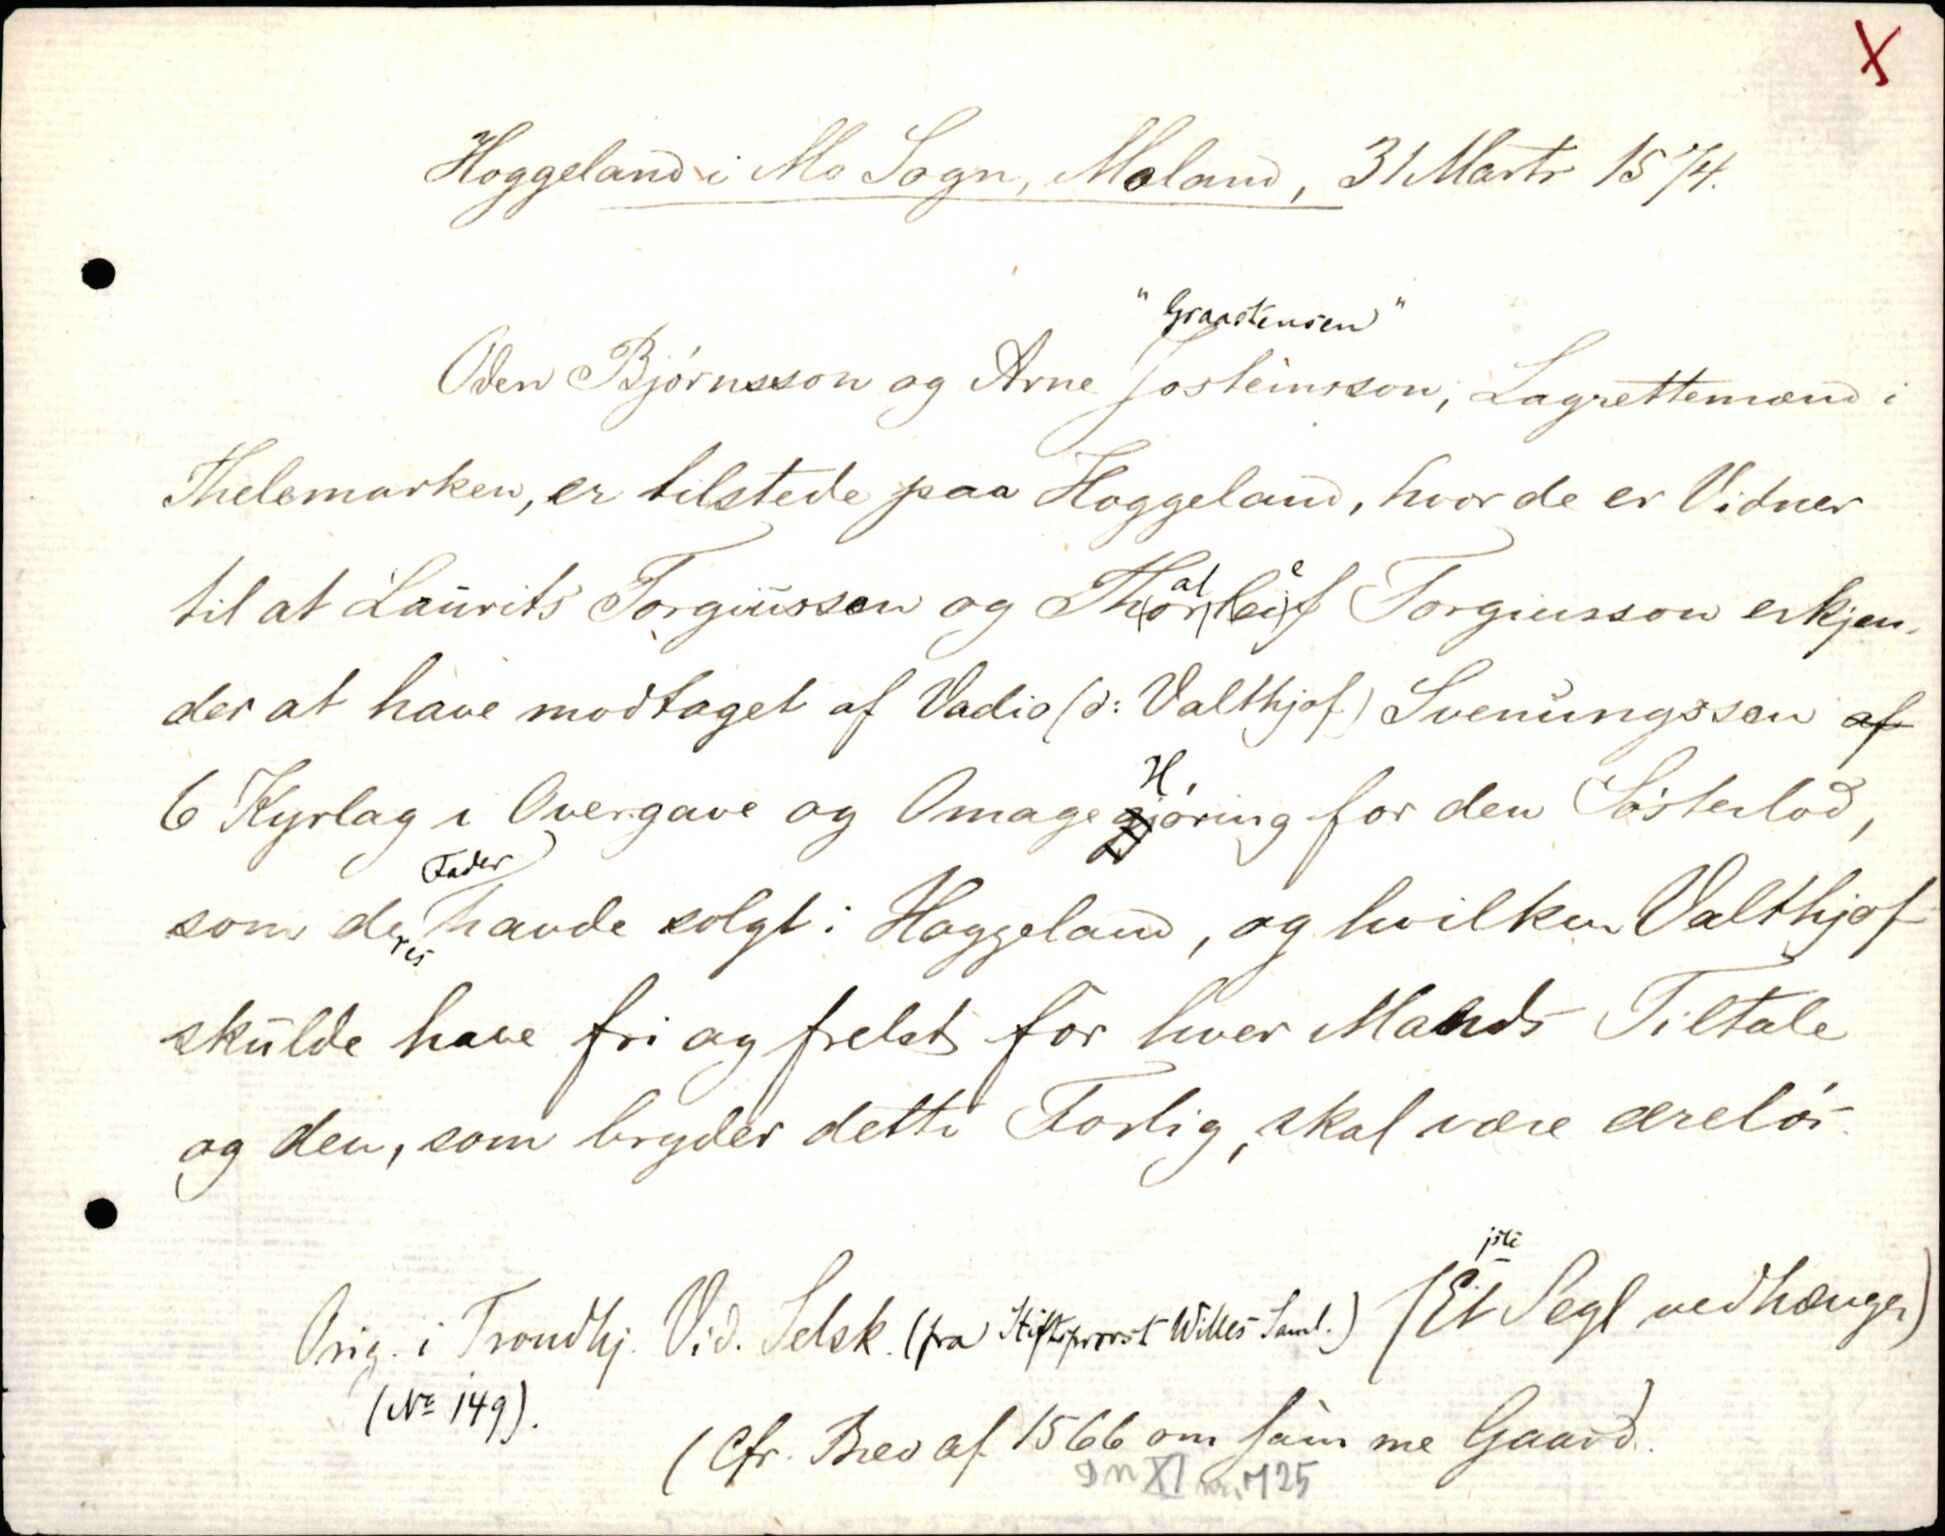 X
Hoggeland i Mo Sogn, Moland, 31 Marts 1574.
" Graastensen "
Oden Bjørnsson og Arne Josteinsson, Lagrettemænd i
Thelemarken, er tilstede paa Hoggeland, hvor de er Vidner
al e
til at Laurits Torgiussen og Thorleif Torgiusson erkjen-
der at have modtaget af Vadio (ɔ: Valthjof) Svenungssen af
H
6 Kyrlag i Overgave og Omage gjøring for den Søsterlod,
Fader
som deres havde solgt i Hoggeland, og hvilken Valthjof
skulde have fri og frelst for hver Mands Tiltale
og den, som bryder dette Forlig, skal være æreløs.
Orig. i Trondhj. Vid. Selsk. (fra Stiftsprovst Willes Saml.) (Et Segl vedhænger)
(No 149).
(Cfr. Brev af 1566 om samme Gaard.
DN XI 725